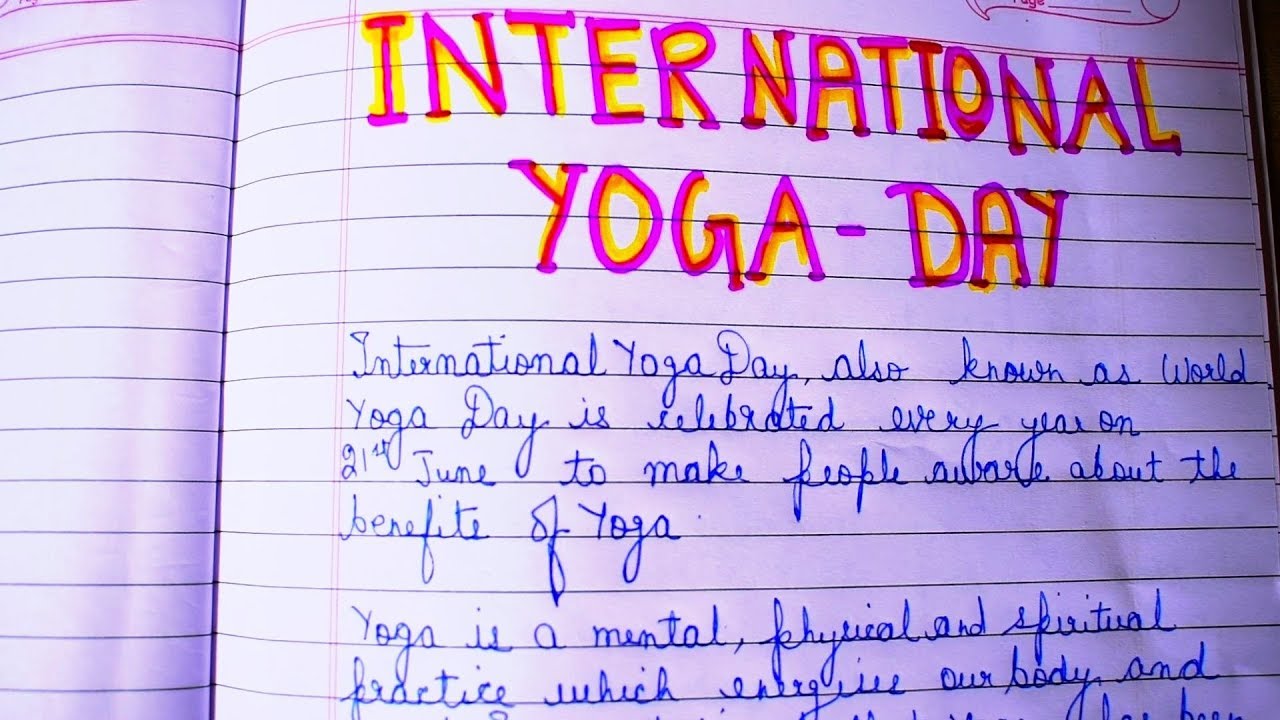 Page
INTERNATIONAL
YOGA - DAY
International Yoga Day, also known as World
Yoga Day is celebrated every year on
21st June to make people aware about the
benefits of Yoga.
Yoga is a mental, physical and spiritual
practice which energise our body and